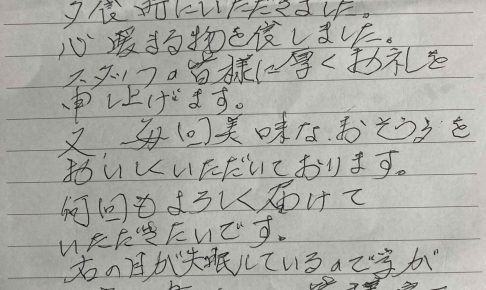 夕食前にいただきました。
心暖まる物を食しました。
スタッフの皆様に厚くお礼を
申し上げます。
又、毎回美味な、おそうざを
おいしくいただいております。
何回もよろしく届けて
いただきたいです。
右の耳が失眠しているので字が